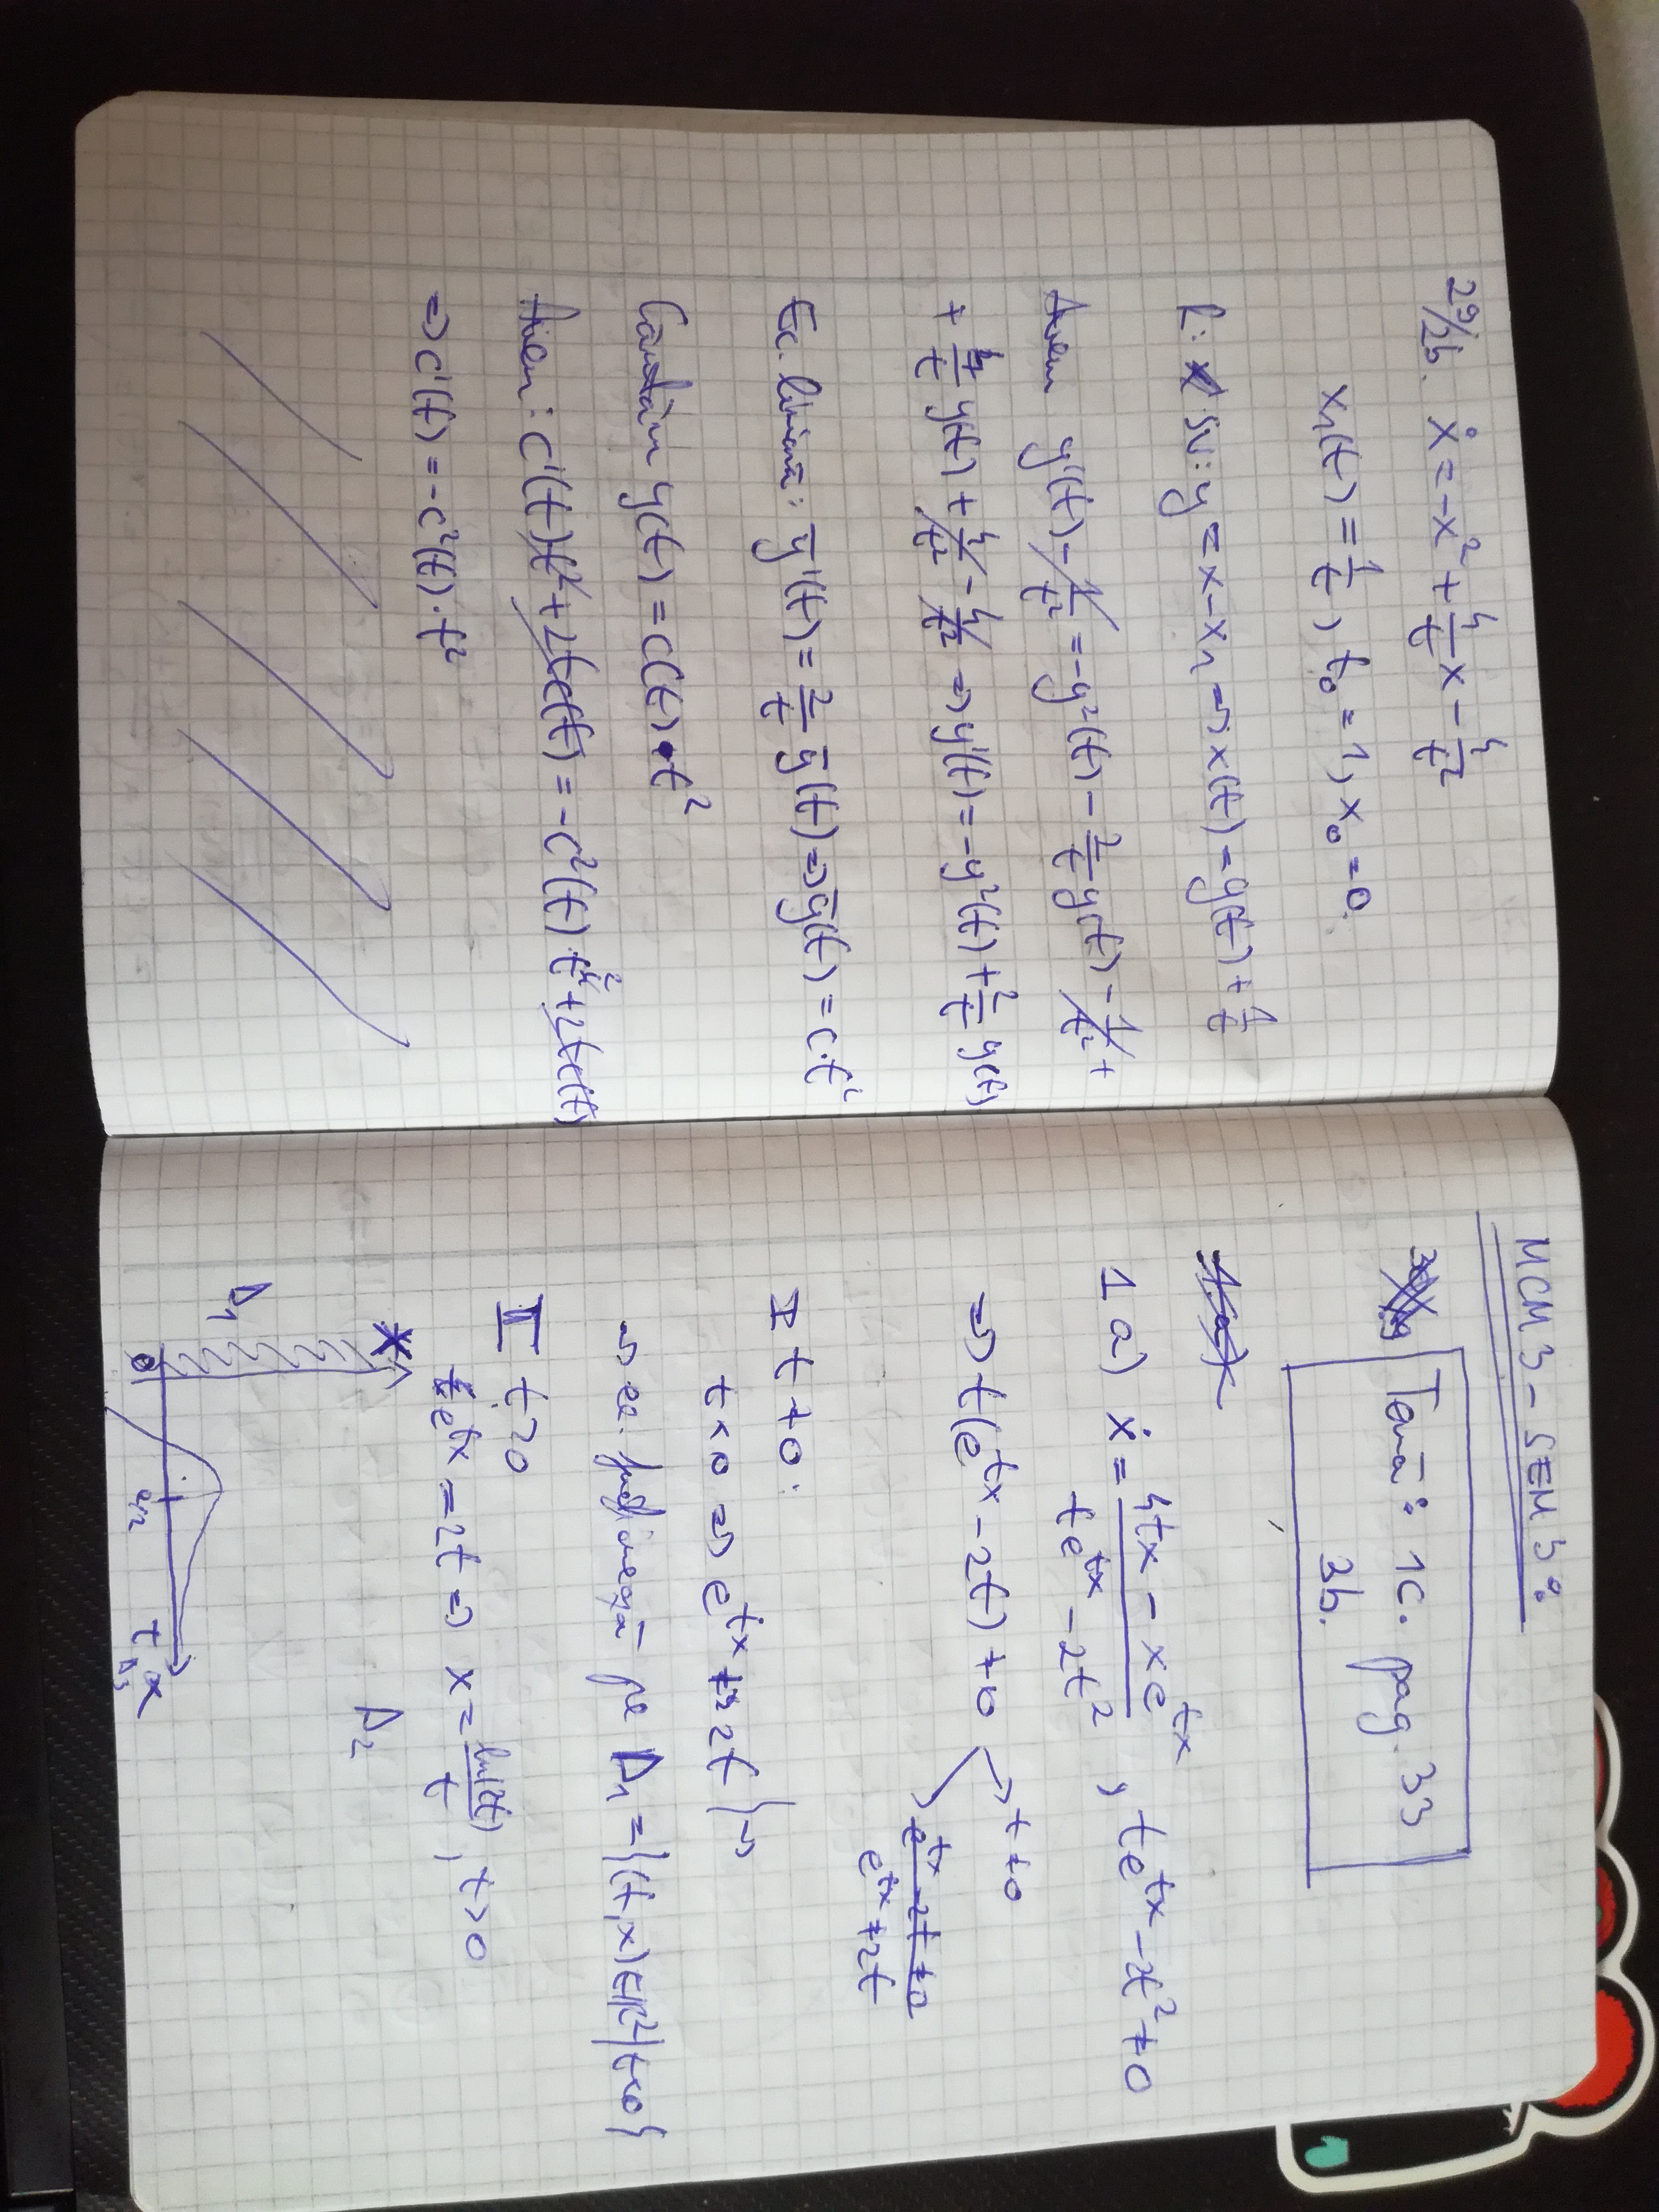 29/2b. ẋ = -x² + 4/t x - 4/t²
x₁(t) = 1/t, t₀ = 1, x₀ = 0.
R: SV: y = x - x₁ => x(t) = y(t) + 1/t
Avem y'(t) - 1/t² = -y²(t) - 2/t y(t) - 1/t² +
+ 4/t y(t) + 4/t² - 4/t² => y'(t) = -y²(t) + 2/t y(t)
Ec. liniară: ȳ'(t) = 2/t ȳ(t) => ȳ(t) = c·t²
Căutăm y(t) = c(t)·t²
Avem: c'(t)t² + 2tc(t) = -c²(t)·t⁴ + 2tc(t)
=> c'(t) = -c²(t)·t²
MCM 3 - SEM 3:
Temă: 1c. pag. 33
3b.
1 a) ẋ = (4tx - xe^tx)/(te^tx - 2t²), te^tx - 2t² ≠ 0
=> t(e^tx - 2t) ≠ 0 → t ≠ 0
e^tx - 2t ≠ 0
e^tx ≠ 2t
I t ≠ 0:
t < 0 => e^tx ≠ 2t } =>
=> ec. pe D₁ = {(t,x) ∈ ℝ² | t<0}
II t > 0
e^tx = 2t => x = ln(2t)/t, t > 0
D₁
D₂
0
e/2
t
D₃